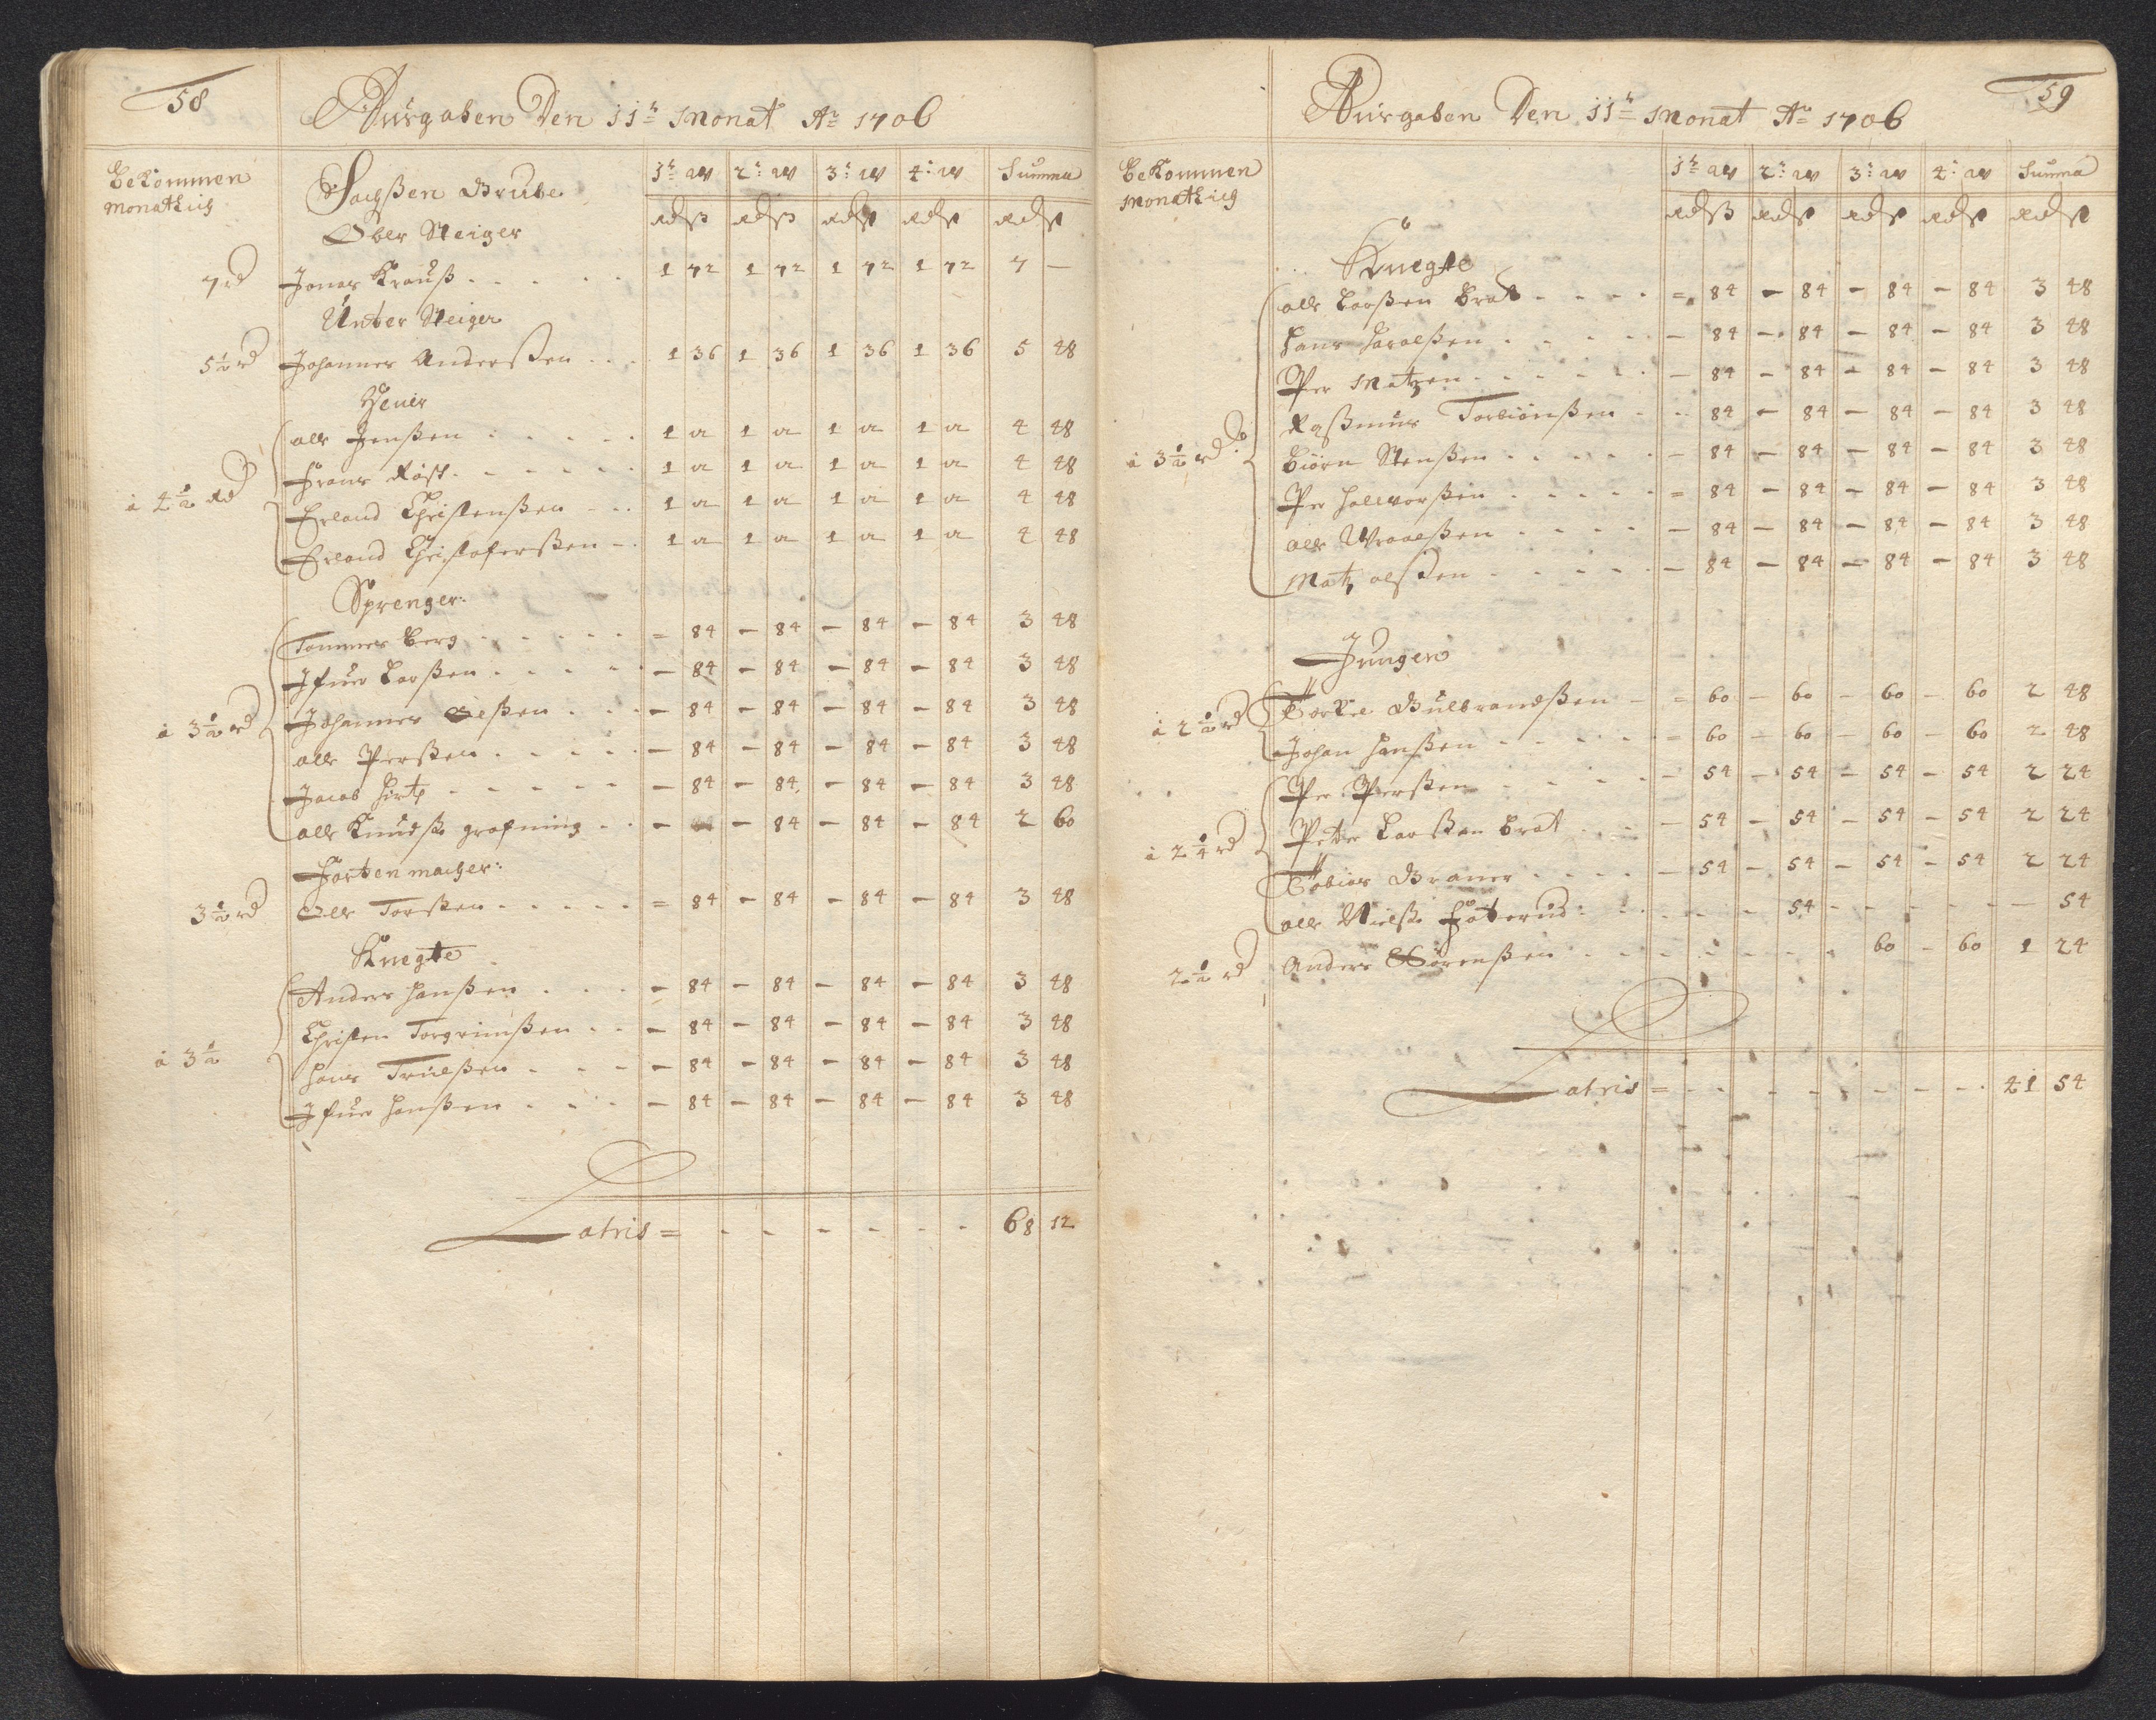 58
Ausgaben Den 11t Monat Ao 1706
Bekommen
monatlich
Sachßen Grube
1t W 2: W 3: W 4: W Summa
Rd ß Rd ß Rd ß Rd ß Rd ß
Ober Steiger
7 rd Jonas Krauß 1 72 1 72 1 72 1 72 7 —
Unter Steiger
5½ rd Johannes Anderßen 1 36 1 36 1 36 1 36 5 48
Heuer
olle Jenßen 1 12 1 12 1 12 1 12 4 48
Frans Röst 1 12 1 12 1 12 1 12 4 48
à 4½ Rd
Erland Christenßen 1 12 1 12 1 12 1 12 4 48
Erland Christoferßen 1 12 1 12 1 12 1 12 4 48
Sprenger:
Tommes Berg = 84 — 84 — 84 — 84 3 48
Ifuer Larßen — 84 — 84 — 84 — 84 3 48
à 3½ rd Johannes Olßen — 84 — 84 — 84 — 84 3 48
olle Perßen — 84 — 84 — 84 — 84 3 48
Jacob Hirtz — 84 — 84 — 84 — 84 3 48
olle Knudß. grafning — — 84 — 84 — 84 2 60
Förten macher:
3½ rd Olle Torßen = 84 — 84 — 84 — 84 3 48
Knegte
Anders Hanßen — 84 — 84 — 84 — 84 3 48
Christen Torgrimßen — 84 — 84 — 84 — 84 3 48
à 3½ Hans Truelßen — 84 — 84 — 84 — 84 3 48
Ifuer Hanßen — 84 — 84 — 84 — 84 3 48
Latris = 68 12
59
Ausgaben Den 11t Monat Ao 1706
Bekommen
monatlich
1t W 2: W 3: W 4: W Summa
Rd ß Rd ß Rd ß Rd ß Rd ß
Knegte
olle Larßen Brat = 84 — 84 — 84 — 84 3 48
Hans Haralßen — 84 — 84 — 84 — 84 3 48
Per Matzen — 84 — 84 — 84 — 84 3 48
Raßmus Torbiönßen 84 — 84 — 84 — 84 3 48
à 3½ rd Biörn Stenßen — 84 — 84 — 84 — 84 3 48
Per Halworßen = 84 — 84 — 84 — 84 3 48
olle Wraalßen — 84 — 84 — 84 — 84 3 48
Matz olßen — 84 — 84 — 84 — 84 3 48
Jungen
à 2½ rd Torkil Gulbrandßen = 60 — 60 — 60 — 60 2 48
Johan Hanßen = 60 — 60 — 60 — 60 2 48
Per Perßen — 54 — 54 — 54 — 54 2 24
à 2¼ rd Peter Larßen Brat — 54 — 54 — 54 — 54 2 24
Tobias Braner — 54 — 54 — 54 — 54 2 24
olle Nielß. 54 — 54
2½ rd Anders Sörenßen 60 — 60 1 24
Latris = 41 54